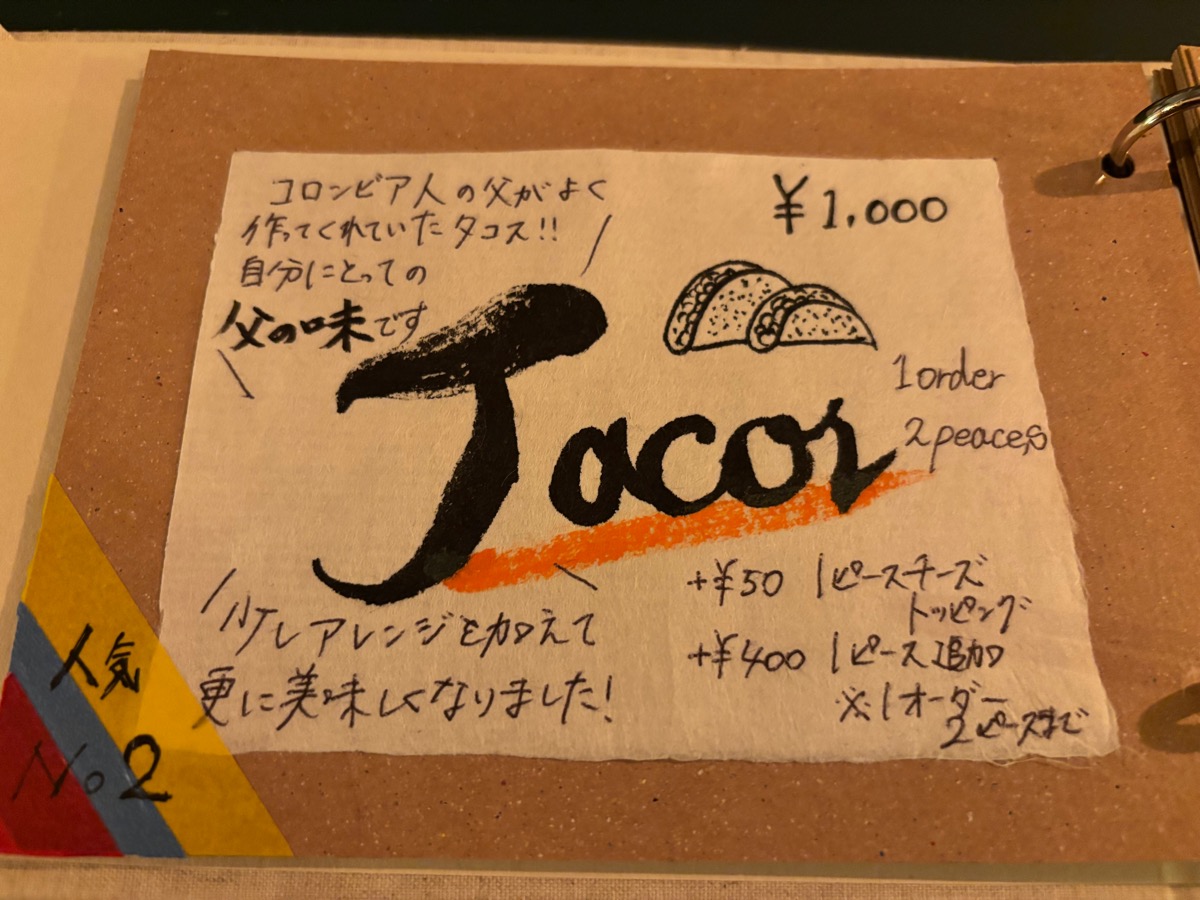 コロンビア人の父がよく
作ってくれていたタコス!!
自分にとっての
父の味です
¥1,000
Tacos
1order
2peaces
少しアレンジを加えて
更に美味しくなりました!
+¥50 1ピースチーズ
トッピング
+¥400 1ピース追加
※1オーダー
2ピースまで
人気
No2